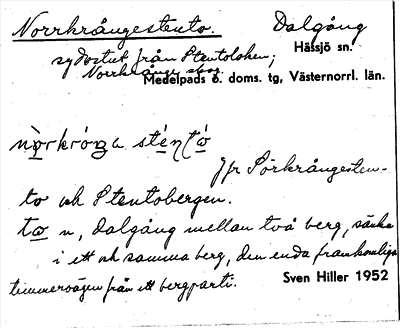 Norrkrångestento. Dalgång
sydostut från Stentoloken; Hässjö sn.
Norrkrånge skog.
Medelpads ö. doms. tg, Västernorrl. län.
nòrkróŋa sténtó
Jfr Sörkrångesten-
to och Stentobergen.
to n, dalgång mellan två berg, sänka
i ett och samma berg, den enda framkomliga
timmervägen från ett bergparti. Sven Hiller 1952